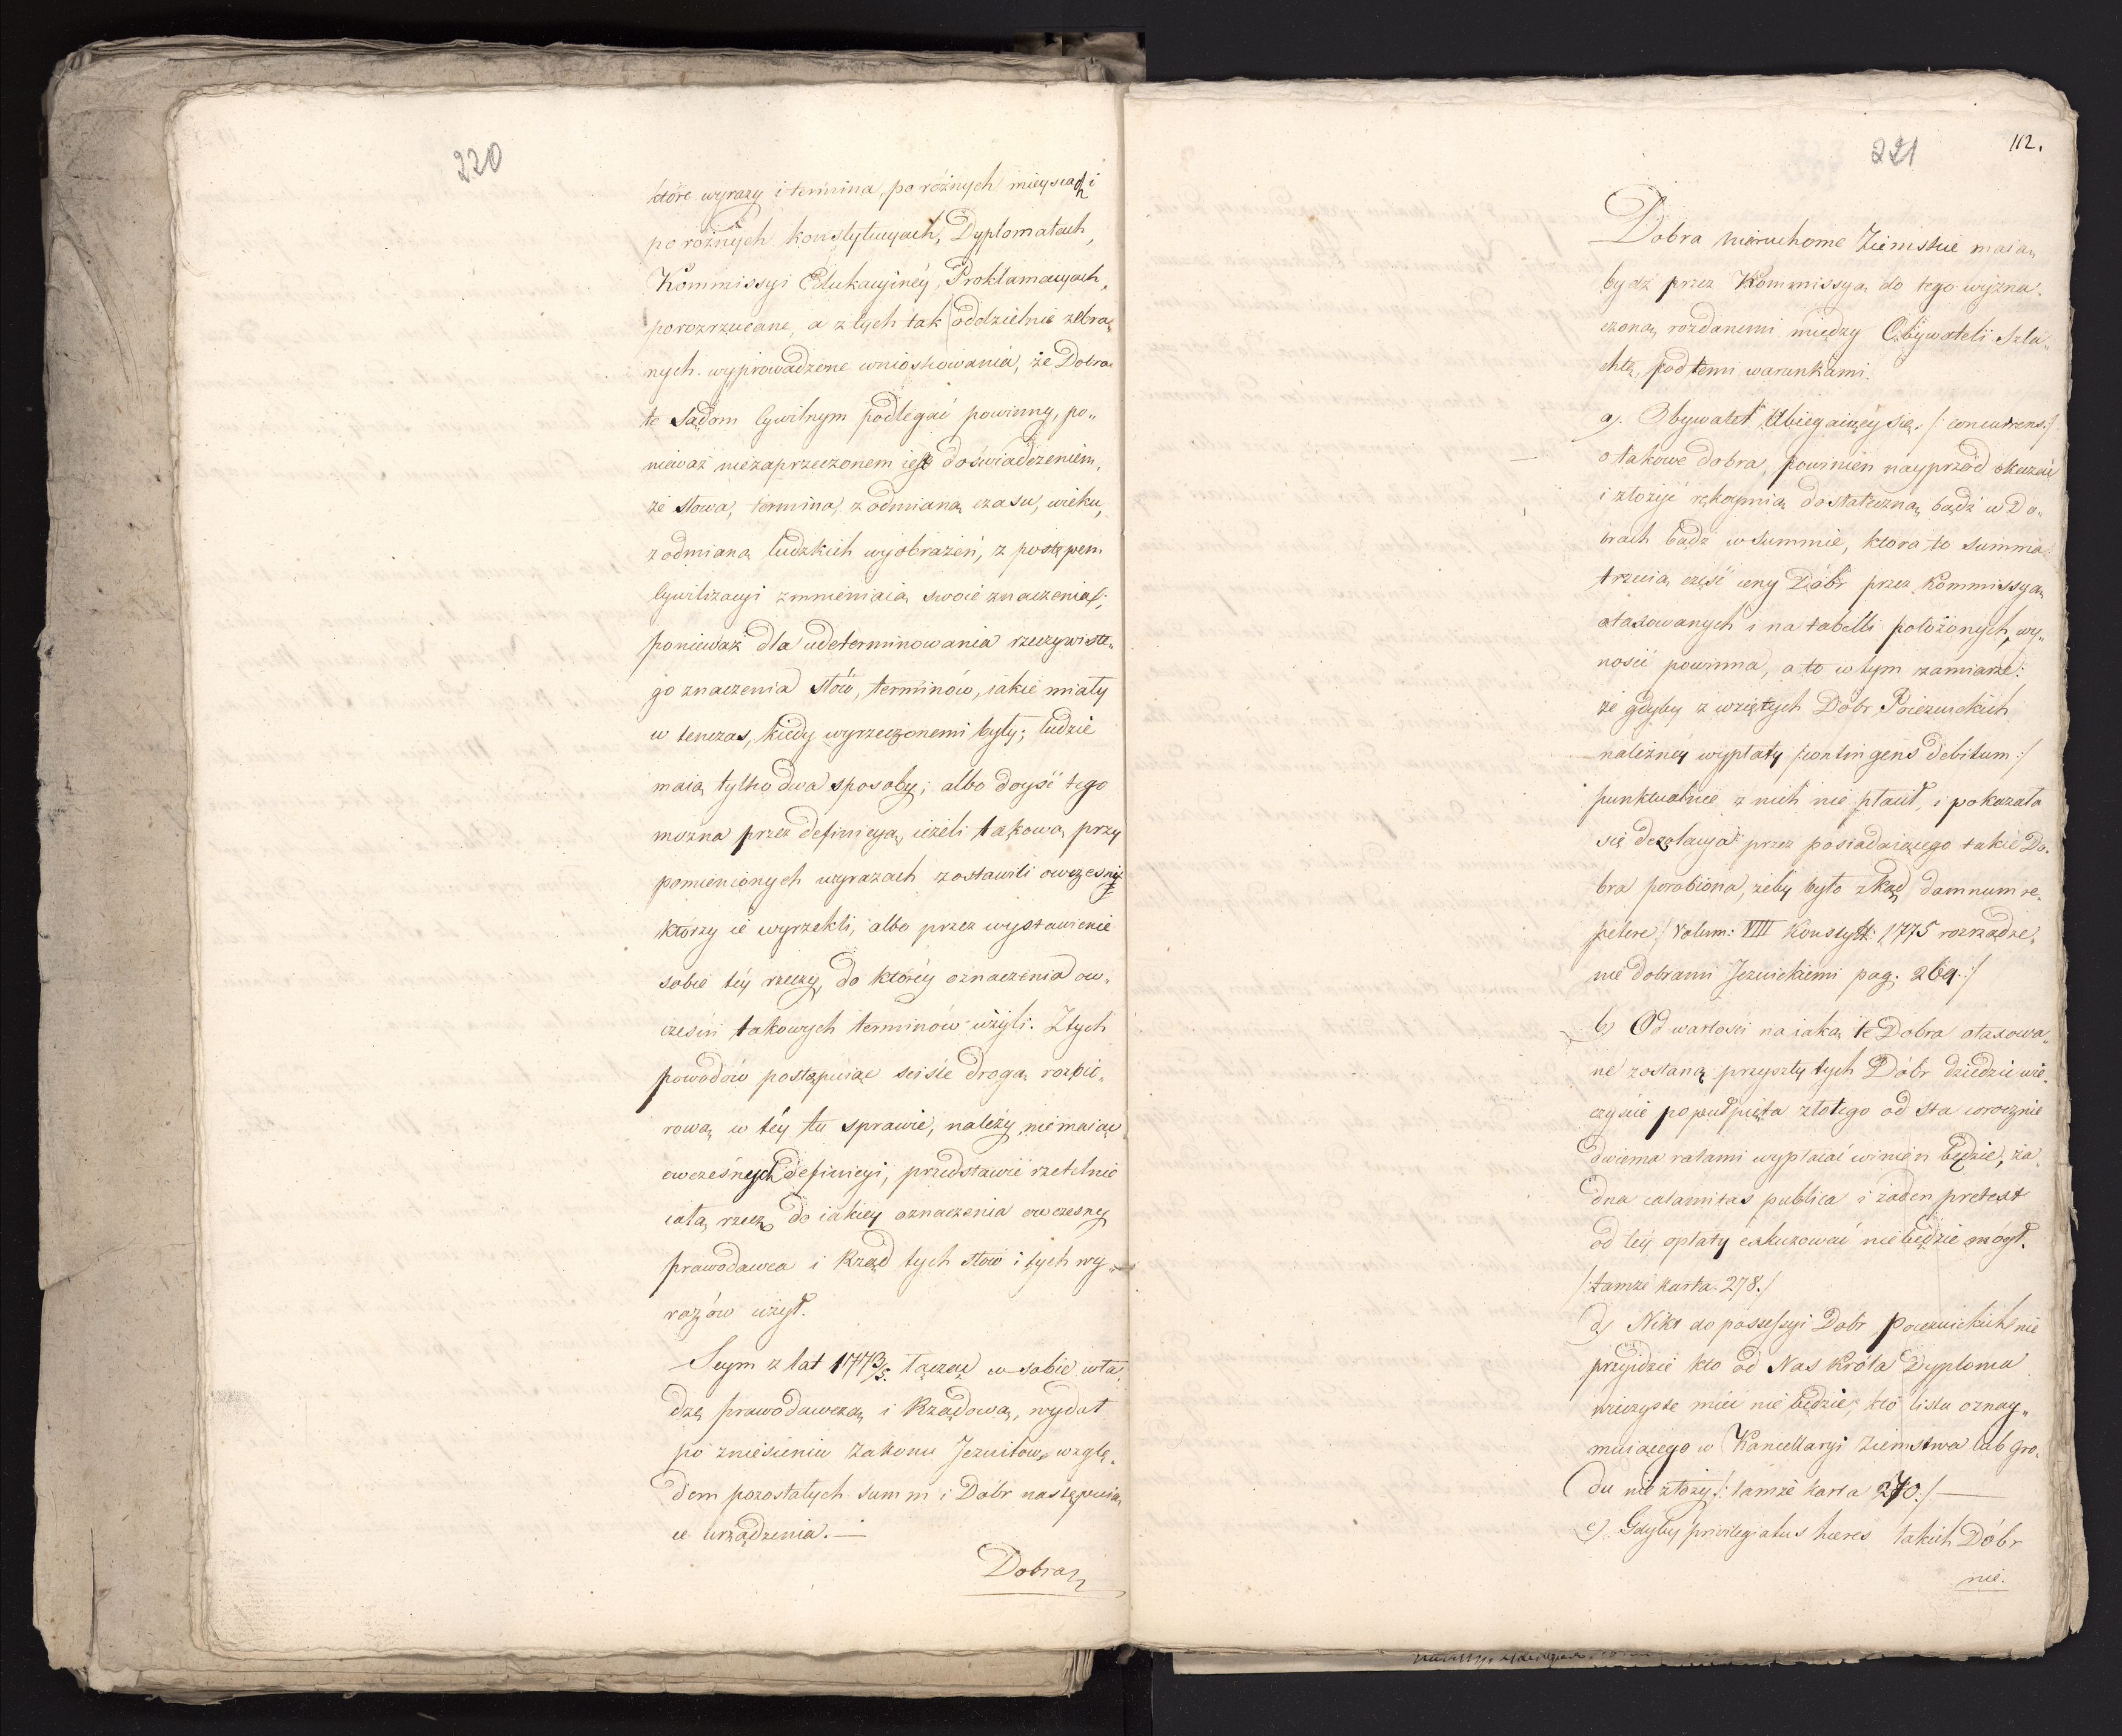 220
które wyrazy i termina, po różnych mieyscach i
po różnych konstytucyach, Dyplomatach,
Kommissyi Edukacyiney, Proklamacyach,
porozrzucane, a z tych tak oddzielnie zebra„
nych wyprowadzone wnioskowania, że Dobra
te Sądom Cywilnym podlegać powinny, po„
nieważ niezaprzeczonem jest doświadczeniem,
że słowa, termina, z odmianą czasu, wieku,
z odmianą ludzkich wyobrażeń, z postępem
Cywilizacyi zmnieniaią swoie znaczenia;
ponieważ dla udeterminowania rzeczywiste„
go znaczenia słów, terminów, iakie miały
w tenczas, kiedy wyrzeczonemi były; ludzie
maią tylko dwa sposoby; albo doyść tego
można przez definicyą, ieżeli takową przy
pomienionych wyrazach zostawili owcześni
którzy ie wyrzekli, albo przez wystawienie
sobie téy rzeczy, do któréy oznaczenia ow„
cześni takowych terminów użyli. Z tych
powodów postępuiąc ściśle drogą rozbio„
rową w téy tu sprawie, należy nie maiąc
owczesnych definicyi, przedstawić rzetelnie
całą rzecz do iakiey oznaczenia owczesny
prawodawca i Rząd tych słów i tych wy„
razów użył.
Seym z lat 1773/5. łącząc w sobie wła„
dzę prawodawczą i Rządową, wydał
po zniesieniu Zakonu Jezuitow, wzglę„
dem pozostałych summ i Dóbr następuią„
ce urządzenia. —
Dobra
221
112.
Dobra nieruchome Ziemskie maią
bydz przez Kommissyą do tego wyzna„
czoną rozdanemi między Obywateli Szla„
chtę, pod temi warunkami.
a). Obywatel Ubiegaiący się /: concurrens :/
o takowe dobra, powinien nayprzód okazać
i złożyć rękoymią dostateczną bądź w Do„
brach bądź w summie, która to summa
trzecią część ceny Dóbr przez Kommissyą
otaxowanych i na tabelli położonych, wy„
nosić powinna, a to w tym zamiarze:
że gdyby z wziętych Dóbr Poiezuickich
należnéy wypłaty /: contingens debitum :/
punktualnie z nich nie płacił, i pokazała
się dezolacya przez posiadaiącego takie Do„
bra porobiona, żeby było zkąd damnum re„
petere /: Volum: VIII Konstyt: 1775 rozrządze„
nie dobrami Jezuickiemi pag: 269. :/
b) Od wartości na iaką te Dobra otaxowa„
ne zostaną przyszły tych Dóbr dziedzic wie„
czyście po pułpięta złotego od sta corocznie
dwiema ratami wypłacać winien będzie, ża„
dna calamitas publica i żaden pretext
od téy opłaty exkuzować nie będzie mógł.
/: tamże karta 278. /
d) Nikt do possessyi Dobr poiezuickich nie
przyidzie kto od Nas Króla Dyploma
wieczyste mieć nie będzie, kto listu oznay„
muiącego w Kancellaryi Ziemstwa lub Gro„
du nie złoży /: tamże karta 270. :/ —
e). Gdyby privilegiatus haeres takich Dóbr
nie.